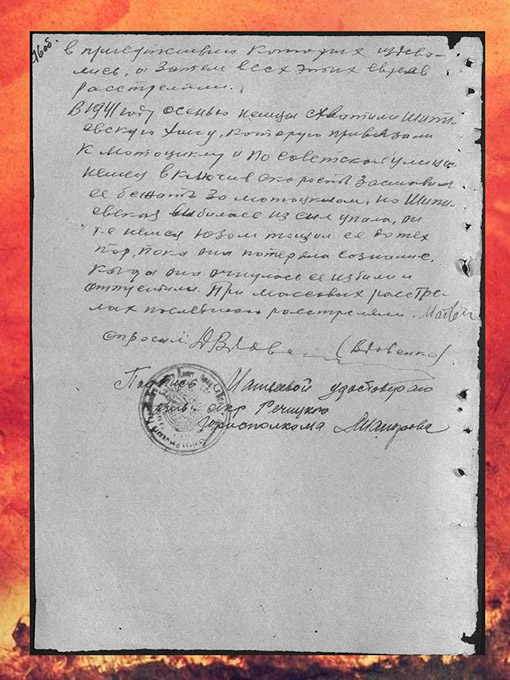 76об.
в присутствии которых издева-
лись, а затем всех этих евреев
расстреляли.
В 1941 году осенью немцы схватили Шипи-
евскую Хану, которую привязали
к мотоциклу и по Советской улице
немец включив скорость заставил
ее бежать за мотоциклом, но Шипи-
евская выбилась из сил упала, он
т-е немец юзом тащил ее до тех
пор, пока она потеряла сознание,
когда она очнулась ее избили и
отпустили. При массовых расстре-
лах последнего расстреляли.
опросил (Вдовенко)
Подпись удостоверяю
секр Речицкого
Горисполкома